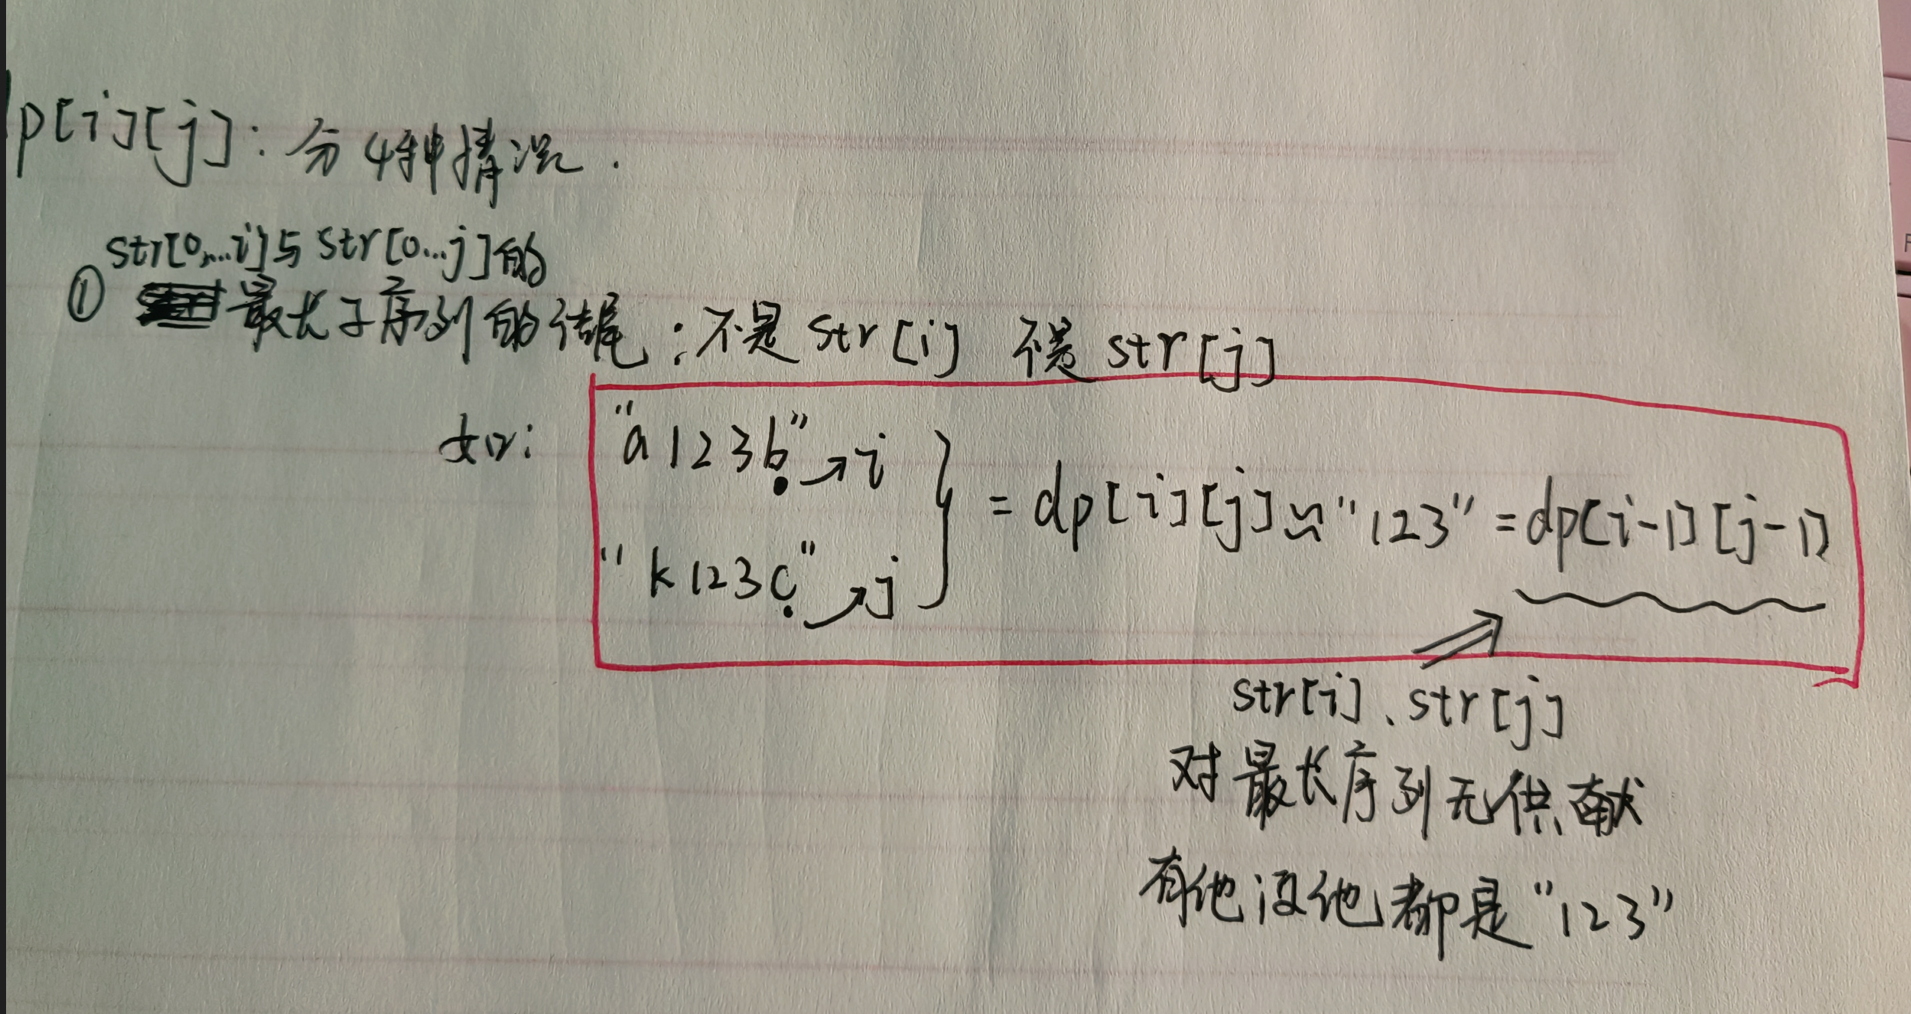 dp[i][j]: 分4种情况.
str[0,...i]与str[0...j]的
① 最长子序列的结尾:不是str[i] 不是str[j]
如: "a123b"→i
= dp[i][j]≈"123"=dp[i-1][j-1]
"k123c"→j
str[i]、str[j]
对最长序列无供献
有他没他都是"123"